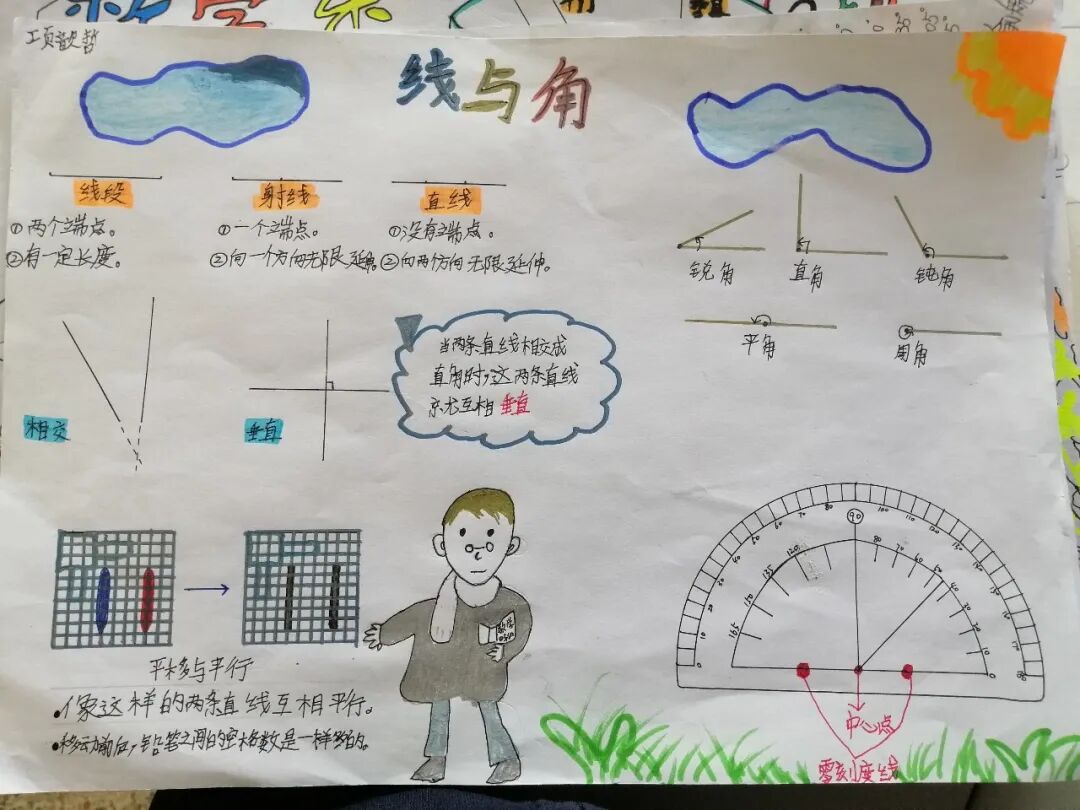 线与角
线段
①两个端点。
②有一定长度。
射线
①一个端点。
②向一个方向无限延伸。
直线
①没有端点。
②向两个方向无限延伸。
锐角
直角
钝角
平角
周角
相交
垂直
当两条直线相交成
直角时,这两条直线
就互相垂直
平移与平行
·像这样的两条直线互相平行。
·移动前后,铅笔之间的空格数是一样多的。
数学
90
中心点
零刻度线